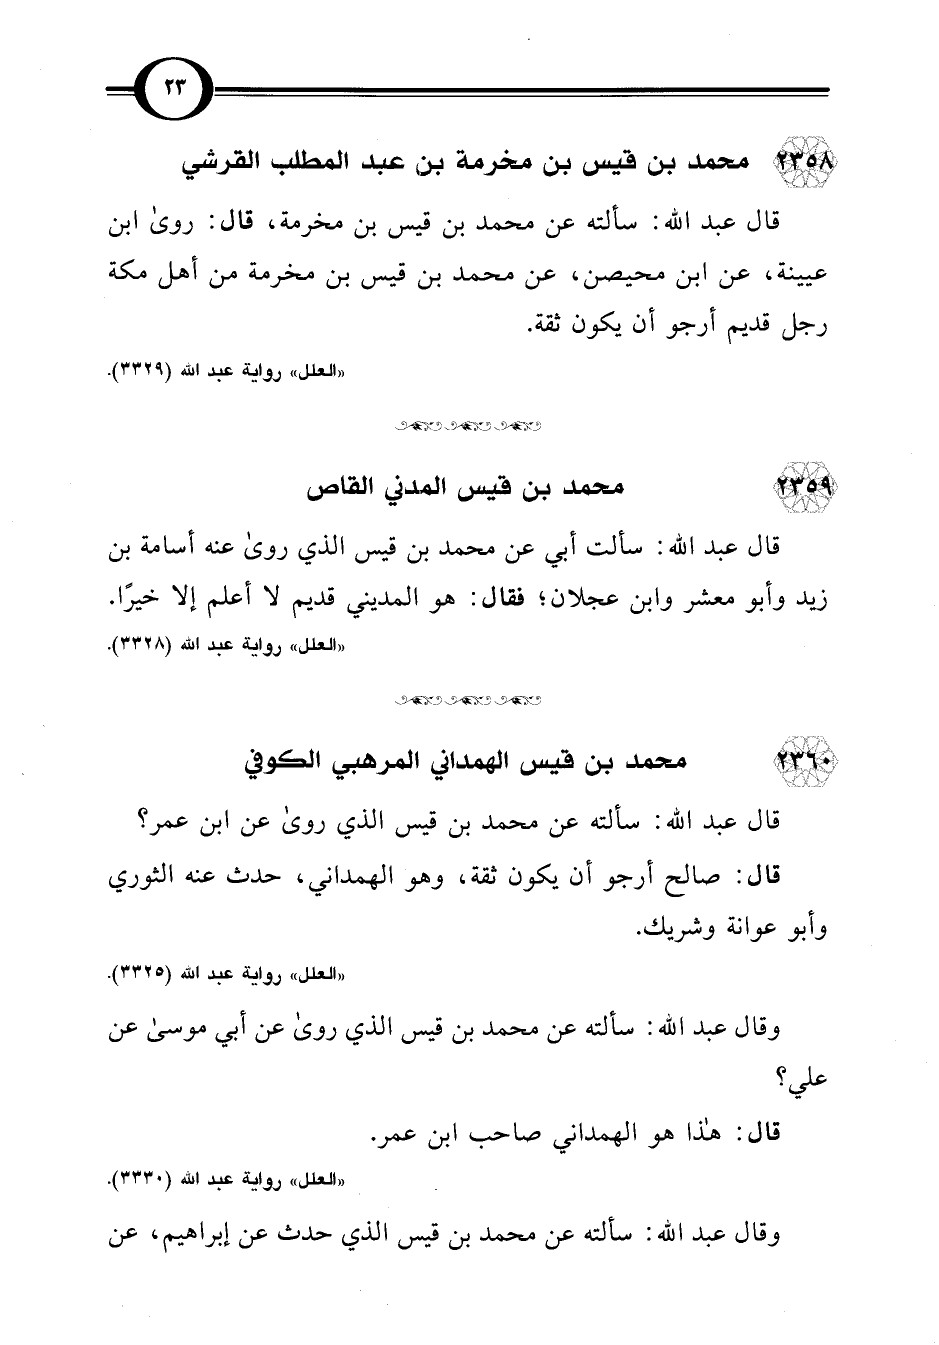 ٢٣
٢٣٥٨ محمد بن قيس بن مخرمة بن عبد المطلب القرشي
قال عبد الله: سألته عن محمد بن قيس بن مخرمة، قال: روىٰ ابن
عيينة، عن ابن محيصن، عن محمد بن قيس بن مخرمة من أهل مكة
رجل قديم أرجو أن يكون ثقة.
«العلل» رواية عبد الله (٣٣٢٩).
٢٣٥٩ محمد بن قيس المدني القاص
قال عبد الله: سألت أبي عن محمد بن قيس الذي روىٰ عنه أسامة بن
زيد وأبو معشر وابن عجلان؛ فقال: هو المديني قديم لا أعلم إلا خيرًا.
«العلل» رواية عبد الله (٣٣٢٨).
٢٣٦٠ محمد بن قيس الهمداني المرهبي الكوفي
قال عبد الله: سألته عن محمد بن قيس الذي روىٰ عن ابن عمر؟
قال: صالح أرجو أن يكون ثقة، وهو الهمداني، حدث عنه الثوري
وأبو عوانة وشريك.
«العلل» رواية عبد الله (٣٣٢٥).
وقال عبد الله: سألته عن محمد بن قيس الذي روىٰ عن أبي موسىٰ عن
علي؟
قال: هٰذا هو الهمداني صاحب ابن عمر.
«العلل» رواية عبد الله (٣٣٣٠).
وقال عبد الله: سألته عن محمد بن قيس الذي حدث عن إبراهيم، عن